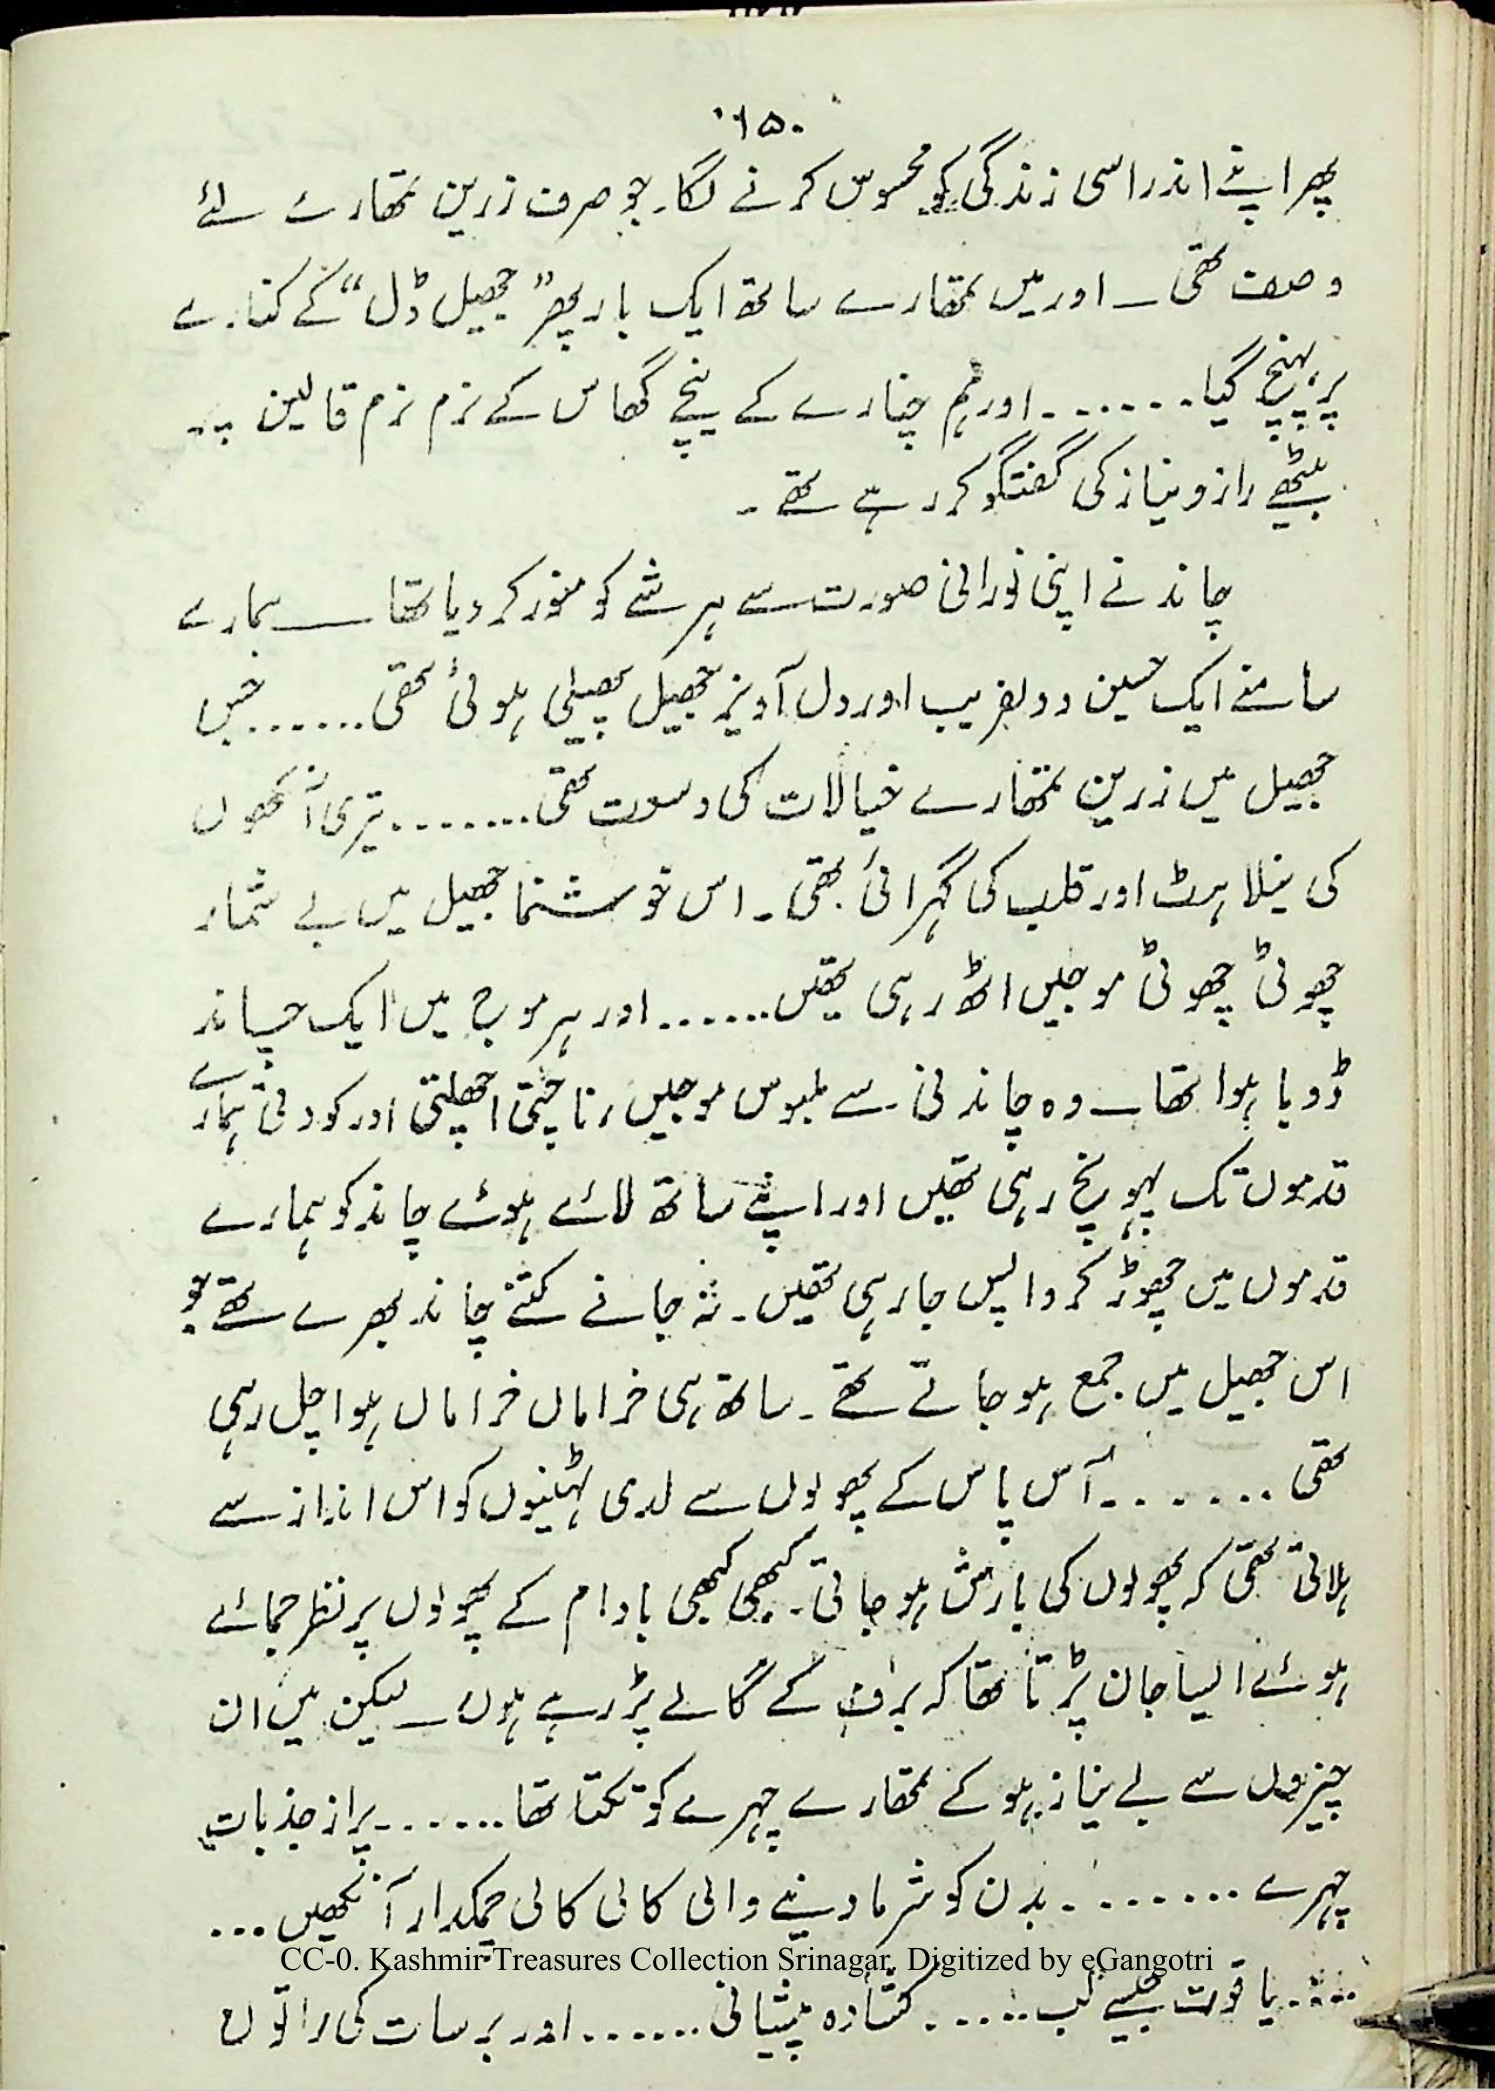 ۱۵۰
پھر اپنے اندر اسی زندگی کو محسوس کرنے لگا۔ جو صرف زرین تمھارے لئے
وصف تھی ــ اور میں تمھارے ساتھ ایک بار پھر ”جھیل ڈل“ کے کنارے
پر پہنچ گیا۔۔۔۔۔۔۔ اور ہم چنارے کے نیچے گھاس کے نرم نرم قالین پر
بیٹھے راز و نیاز کی گفتگو کر رہے تھے ۔
چاند نے اپنی نورانی صورت سے ہر شے کو منور کر دیا تھا ــ ہمارے
سامنے ایک حسین و دلفریب اور دل آویز جھیل پھیلی ہوئی تھی۔۔۔۔۔۔ جس
جھیل میں زرین تمھارے خیالات کی وسعت تھی۔۔۔۔۔۔۔۔ تیری آنکھوں
کی نیلاہٹ اور قلب کی گہرائی تھی۔ اس خوشنما جھیل میں بے شمار
چھوٹی چھوٹی موجیں اٹھ رہی تھیں۔۔۔۔۔۔ اور ہر موج میں ایک چاند
ڈوبا ہوا تھا ــ وہ چاندنی سے ملبوس موجیں، ناچتی اچھلتی اور کودتی ہمارے
قدموں تک پہونچ رہی تھیں اور اپنے ساتھ لائے ہوئے چاند کو ہمارے
قدموں میں چھوڑ کر واپس جا رہی تھیں۔ نہ جانے کتنے چاند بھرے تھے جو
اس جھیل میں جمع ہو جاتے تھے ۔ ساتھ ہی خراماں خراماں ہوا چل رہی
تھی۔۔۔۔۔۔۔۔ آس پاس کے پھولوں سے لدی ٹہنیوں کو اس انداز سے
ہلاتی تھی کہ پھولوں کی بارش ہو جاتی۔ کبھی کبھی بادام کے پھولوں پر نظر جمائے
ہوئے ایسا جان پڑتا تھا کہ برف کے گالے پڑ رہے ہوں ــ لیکن میں ان
چیزوں سے بے نیاز ہو کے تمھارے چہرے کو تکتا تھا۔۔۔۔۔۔۔ پراز جذبات
چہرے۔۔۔۔۔۔۔۔ بدن کو شرما دینے والی کالی کالی چمکدار آنکھیں۔۔۔
CC-0. Kashmir Treasures Collection Srinagar. Digitized by eGangotri
۔۔۔۔ یاقوت جیسے لب۔۔۔۔۔ کشادہ پیشانی۔۔۔۔۔۔۔ اور برسات کی راتوں